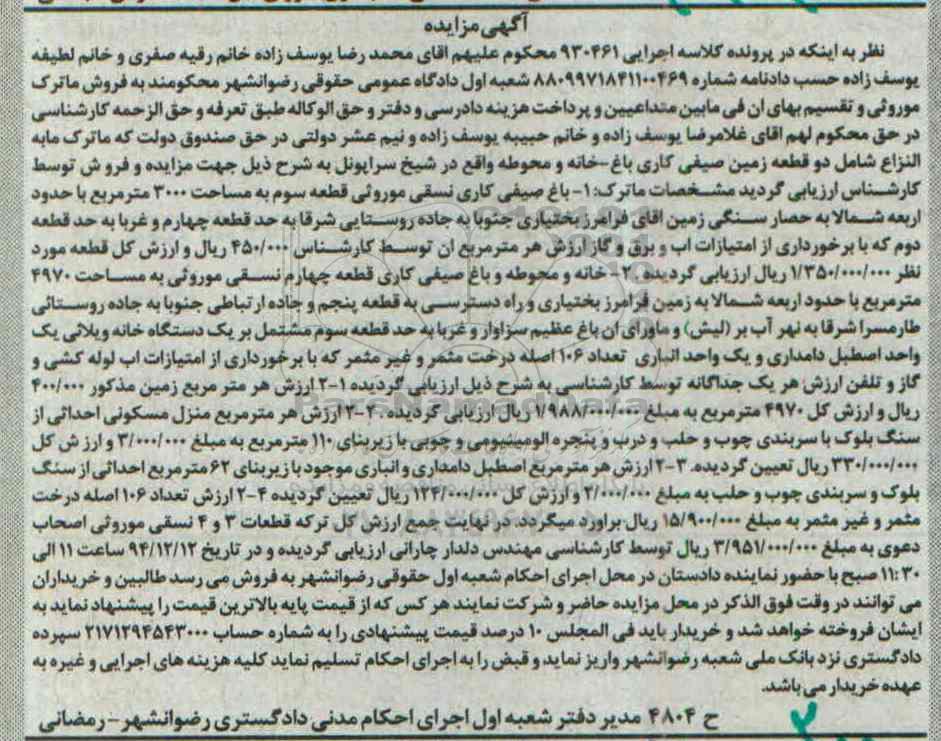 آگهی مزایده
نظر به اینکه در پرونده کلاسه اجرایی ۹۳۰۴۶۱ محکوم علیهم اقای محمد رضا یوسف زاده خانم رقیه صفری و خانم لطیفه
یوسف زاده حسب دادنامه شماره ۸۸۰۹۹۷۱۸۴۱۱۰۰۴۶۹ شعبه اول دادگاه عمومی حقوقی رضوانشهر محکومند به فروش ماترک
موروثی و تقسیم بهای ان فی مابین متداعیین و پرداخت هزینه دادرسی و دفتر و حق الوکاله طبق تعرفه و حق الزحمه کارشناسی
در حق محکوم لهم اقای غلامرضا یوسف زاده و خانم حبیبه یوسف زاده و نیم عشر دولتی در حق صندوق دولت که ماترک مابه
النزاع شامل دو قطعه زمین صیفی کاری باغ-خانه و محوطه واقع در شیخ سراپونل به شرح ذیل جهت مزایده و فروش توسط
کارشناس ارزیابی گردید مشخصات ماترک: ۱- باغ صیفی کاری نسقی موروثی قطعه سوم به مساحت ۳۰۰۰ مترمربع با حدود
اربعه شمالا به حصار سنگی زمین اقای فرامرز بختیاری جنوبا به جاده روستایی شرقا به حد قطعه چهارم و غربا به حد قطعه
دوم که با برخورداری از امتیازات اب و برق و گاز ارزش هر مترمربع ان توسط کارشناس ۴۵۰/۰۰۰ ریال و ارزش کل قطعه مورد
نظر ۱/۳۵۰/۰۰۰/۰۰۰ ریال ارزیابی گردیده .۲- خانه و محوطه و باغ صیفی کاری قطعه چهارم نسقی موروثی به مساحت ۴۹۷۰
مترمربع با حدود اربعه شمالا به زمین فرامرز بختیاری و راه دسترسی به قطعه پنجم و جاده ارتباطی جنوبا به جاده روستائی
طارمسرا شرقا به نهر آب بر (لیش) و ماورای ان باغ عظیم سزاوار و غربا به حد قطعه سوم مشتمل بر یک دستگاه خانه ویلائی یک
واحد اصطبل دامداری و یک واحد انباری تعداد ۱۰۶ اصله درخت مثمر و غیر مثمر که با برخورداری از امتیازات اب لوله کشی و
گاز و تلفن ارزش هر یک جداگانه توسط کارشناسی به شرح ذیل ارزیابی گردیده ۱-۲ ارزش هر متر مربع زمین مذکور ۴۰۰/۰۰۰
ریال و ارزش کل ۴۹۷۰ مترمربع به مبلغ ۱/۹۸۸/۰۰۰/۰۰۰ ریال ارزیابی گردیده .۲-۲ ارزش هر مترمربع منزل مسکونی احداثی از
سنگ بلوک با سربندی چوب و حلب و درب و پنجره الومینیومی و چوبی با زیربنای ۱۱۰ مترمربع به مبلغ ۳/۰۰۰/۰۰۰ و ارزش کل
۳۳۰/۰۰۰/۰۰۰ ریال تعیین گردیده. ۳-۲ ارزش هر مترمربع اصطبل دامداری و انباری موجود با زیربنای ۶۲ مترمربع احداثی از سنگ
بلوک و سربندی چوب و حلب به مبلغ ۲/۰۰۰/۰۰۰ و ارزش کل ۱۲۴/۰۰۰/۰۰۰ ریال تعیین گردیده ۴-۲ ارزش تعداد ۱۰۶ اصله درخت
مثمر و غیر مثمر به مبلغ ۱۵/۹۰۰/۰۰۰ ریال براورد میگردد در نهایت جمع ارزش کل ترکه قطعات ۳ و ۴ نسقی موروثی اصحاب
دعوی به مبلغ ۳/۹۵۱/۰۰۰/۰۰۰ ریال توسط کارشناسی مهندس دلدار چارانی ارزیابی گردیده و در تاریخ ۹۴/۱۲/۱۲ ساعت ۱۱ الی
۱۱:۳۰ صبح با حضور نماینده دادستان در محل اجرای احکام شعبه اول حقوقی رضوانشهر به فروش می رسد طالبین و خریداران
می توانند در وقت فوق الذکر در محل مزایده حاضر و شرکت نمایند هر کس که از قیمت پایه بالاترین قیمت را پیشنهاد نماید به
ایشان فروخته خواهد شد و خریدار باید فی المجلس ۱۰ درصد قیمت پیشنهادی را به شماره حساب ۲۱۷۱۲۹۴۵۴۳۰۰۰ سپرده
دادگستری نزد بانک ملی شعبه رضوانشهر واریز نماید و قبض را به اجرای احکام تسلیم نماید کلیه هزینه های اجرایی و غیره به
عهده خریدار می باشد.
ح ۴۸۰۴ مدیر دفتر شعبه اول اجرای احکام مدنی دادگستری رضوانشهر - رمضانی
ParsNamadData